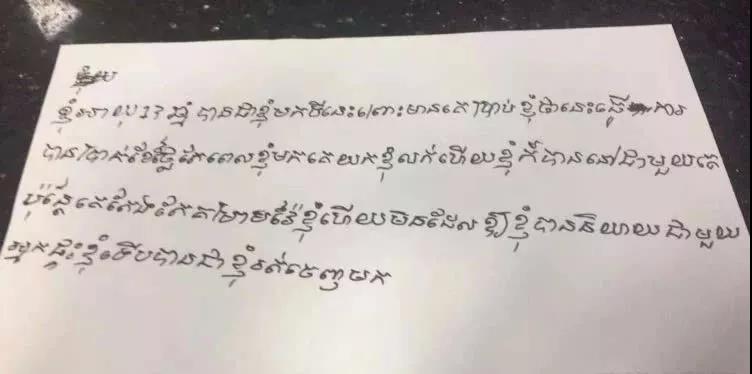 ខ្ញុំអាយុ17ឆ្នាំ បានជាខ្ញុំមកទីនេះព្រោះមានគេប្រាប់ខ្ញុំថានេះធ្វើការ
បានប្រាក់ខែថ្លៃតែពេលខ្ញុំមកគេយកខ្ញុំលក់ហើយខ្ញុំក៏បាននៅជាមួយគេ
ប៉ុន្តែគេតែងតែគម្រាមវ៉ៃខ្ញុំហើយមិនដែលឱ្យខ្ញុំបាននិយាយជាមួយ
អ្នកផ្ទះខ្ញុំទើបបានជាខ្ញុំរត់ចេញមក